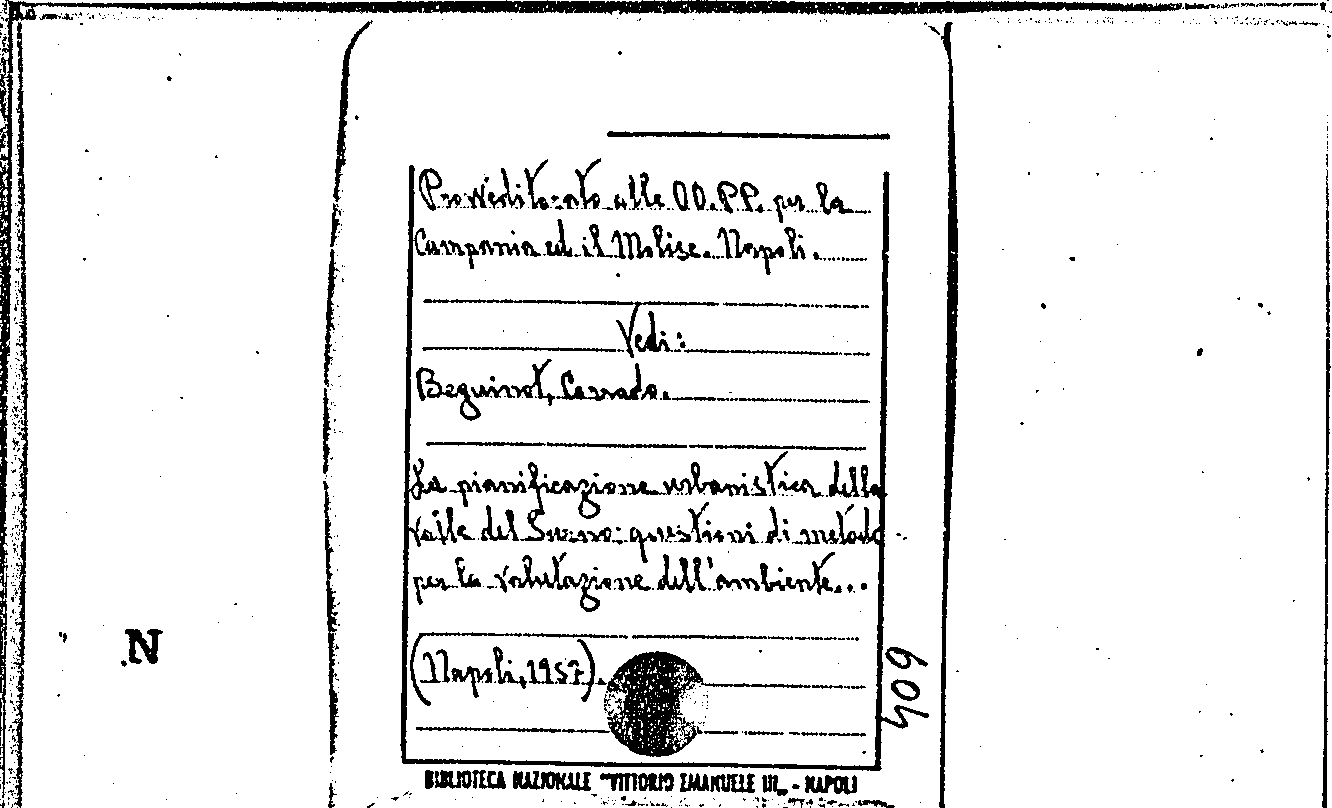 Provveditorato alle OO.PP. per la
Campania ed il Molise. Napoli.
Vedi:
Beguinot, Corrado.
La pianificazione urbanistica della
valle del Sarno: questioni di metodo
per la valutazione dell'ambiente...
(Napoli, 1957).
604
N
BIBLIOTECA NAZIONALE "VITTORIO EMANUELE III" - NAPOLI